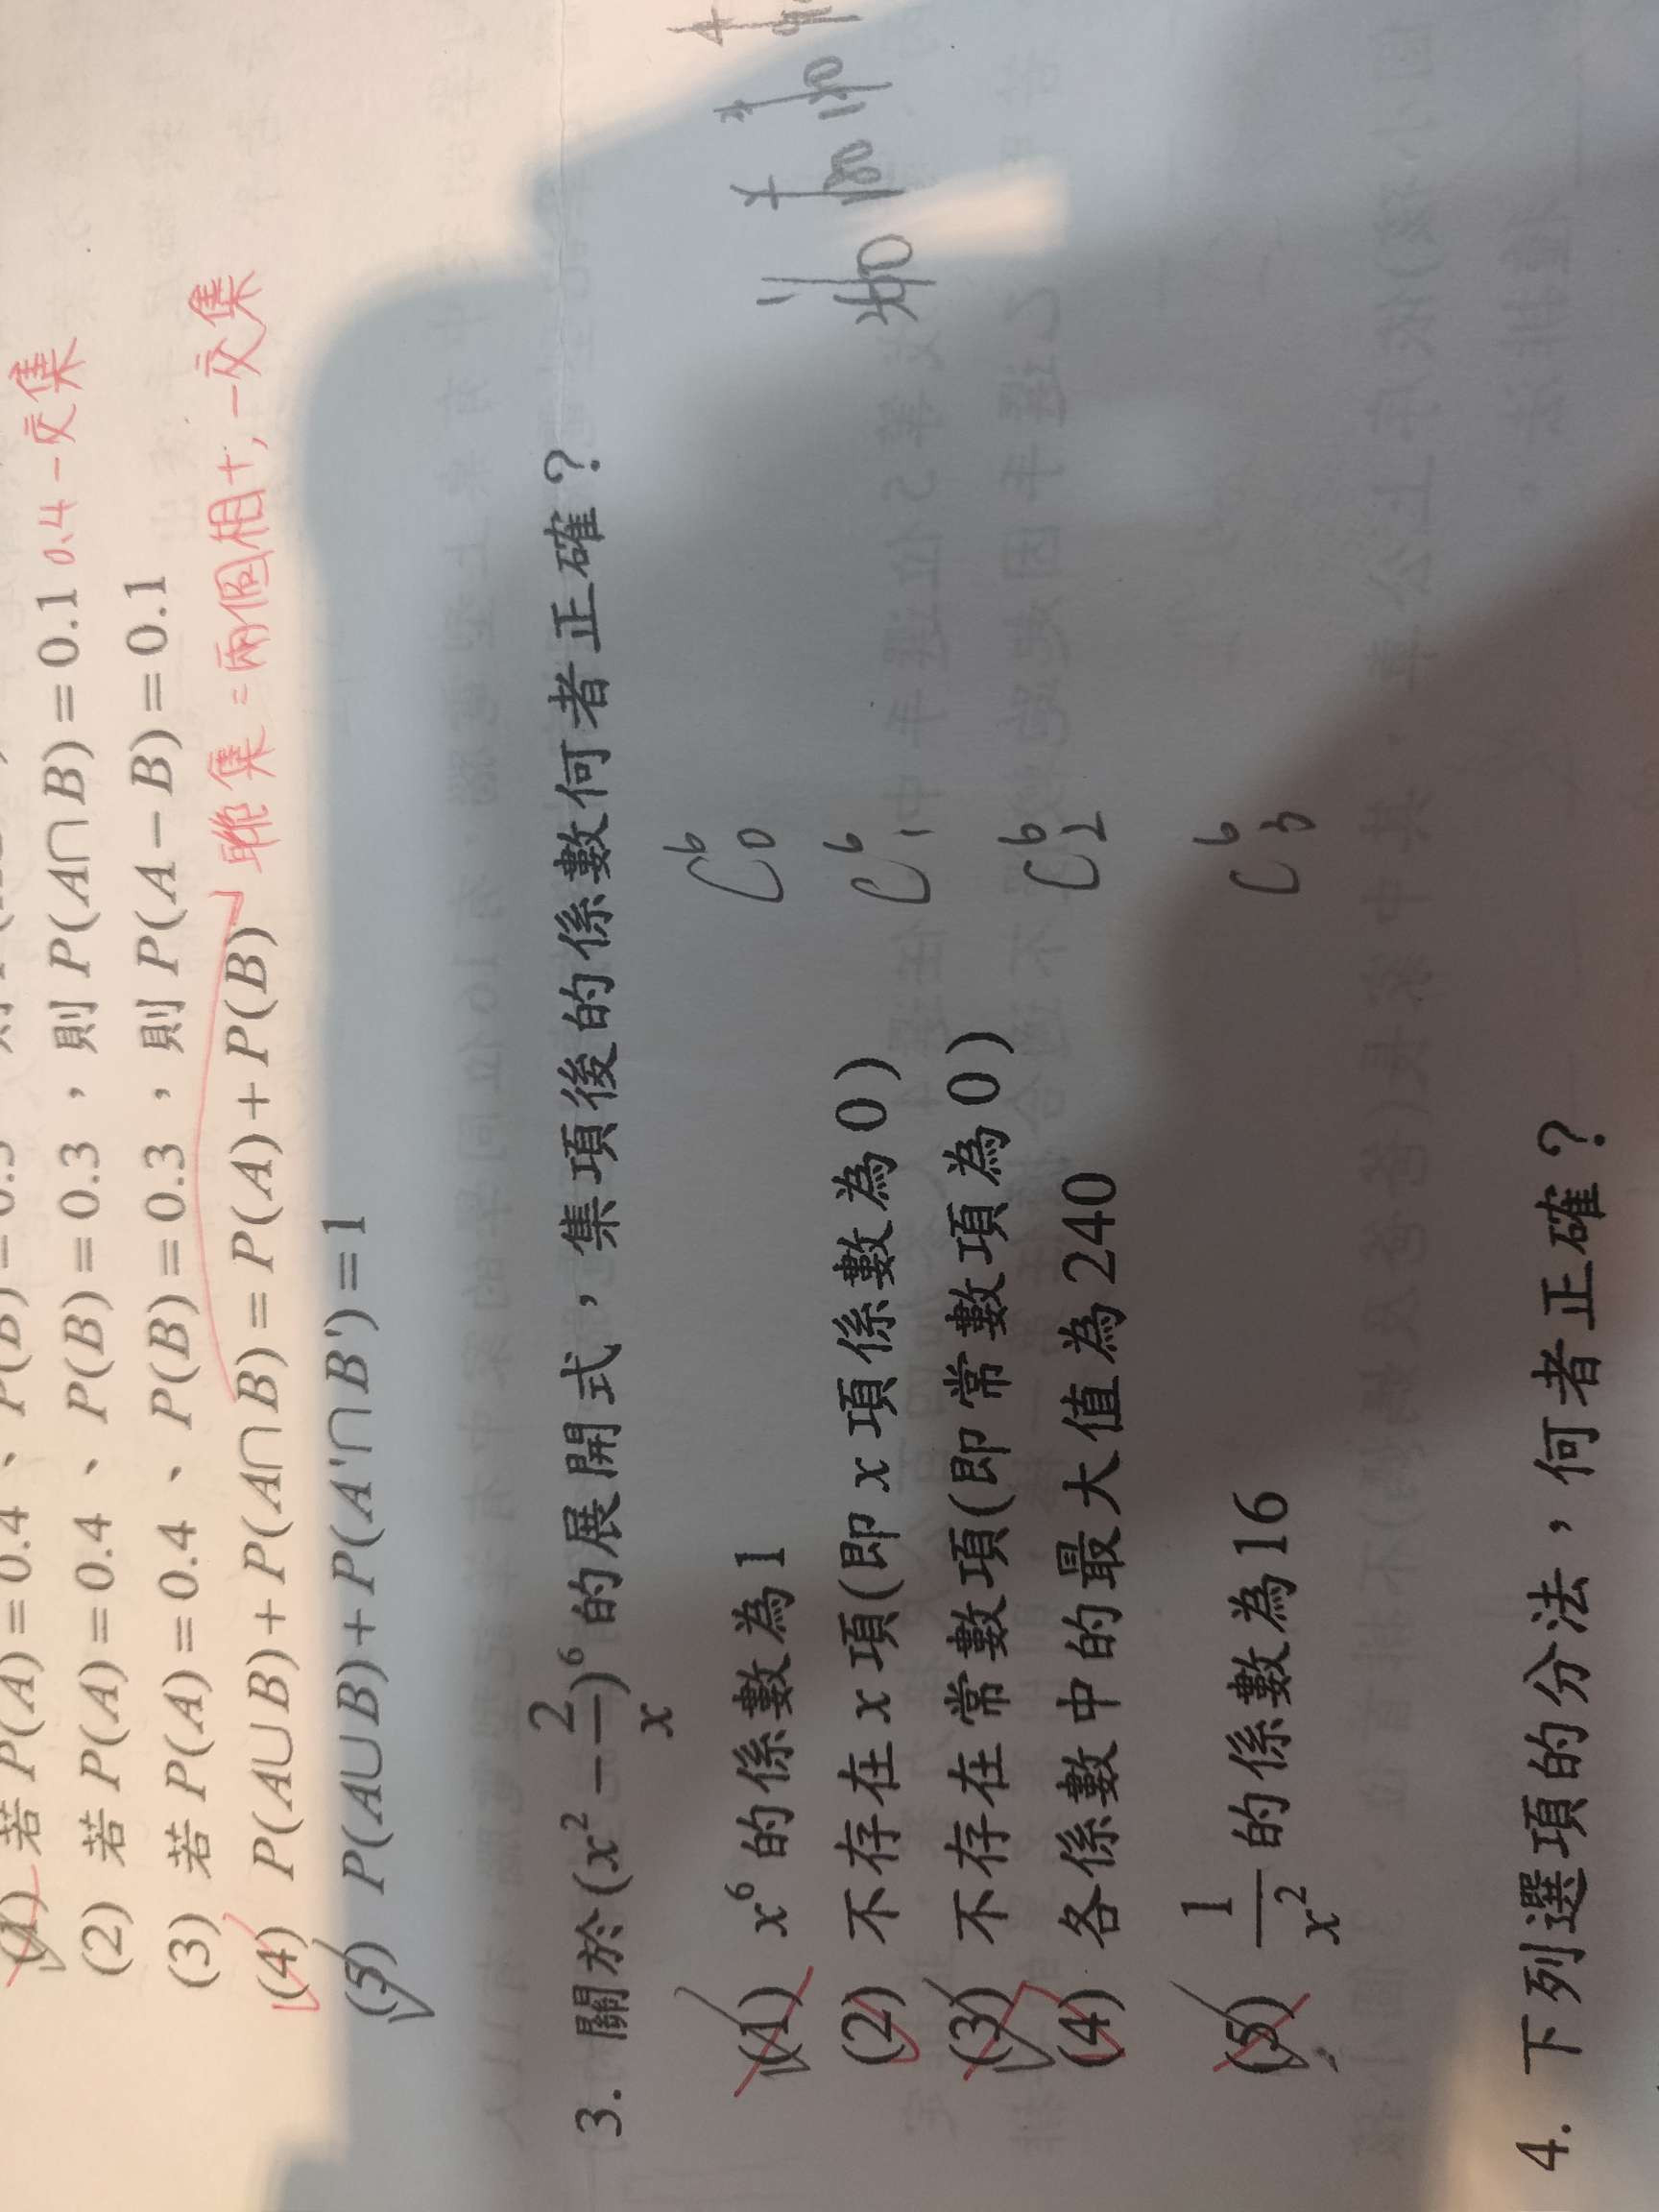 (1) 若 P(A)=0.4、P(B)=0.3
(2) 若 P(A)=0.4、P(B)=0.3,則 P(A∩B)=0.1 0.4-交集
(3) 若 P(A)=0.4、P(B)=0.3,則 P(A-B)=0.1
(4) P(A∪B)+P(A∩B)=P(A)+P(B) 聯集=兩個相+,-交集
(5) P(A∪B)+P(A'∩B')=1
3. 關於(x²-2/x)⁶的展開式,集項後的係數何者正確?
(1) x⁶的係數為1 C⁶₀
(2) 不存在x項(即x項係數為0) C⁶₁
(3) 不存在常數項(即常數項為0) C⁶₂
(4) 各係數中的最大值為240
(5) 1/x²的係數為16 C⁶₃
4. 下列選項的分法,何者正確?